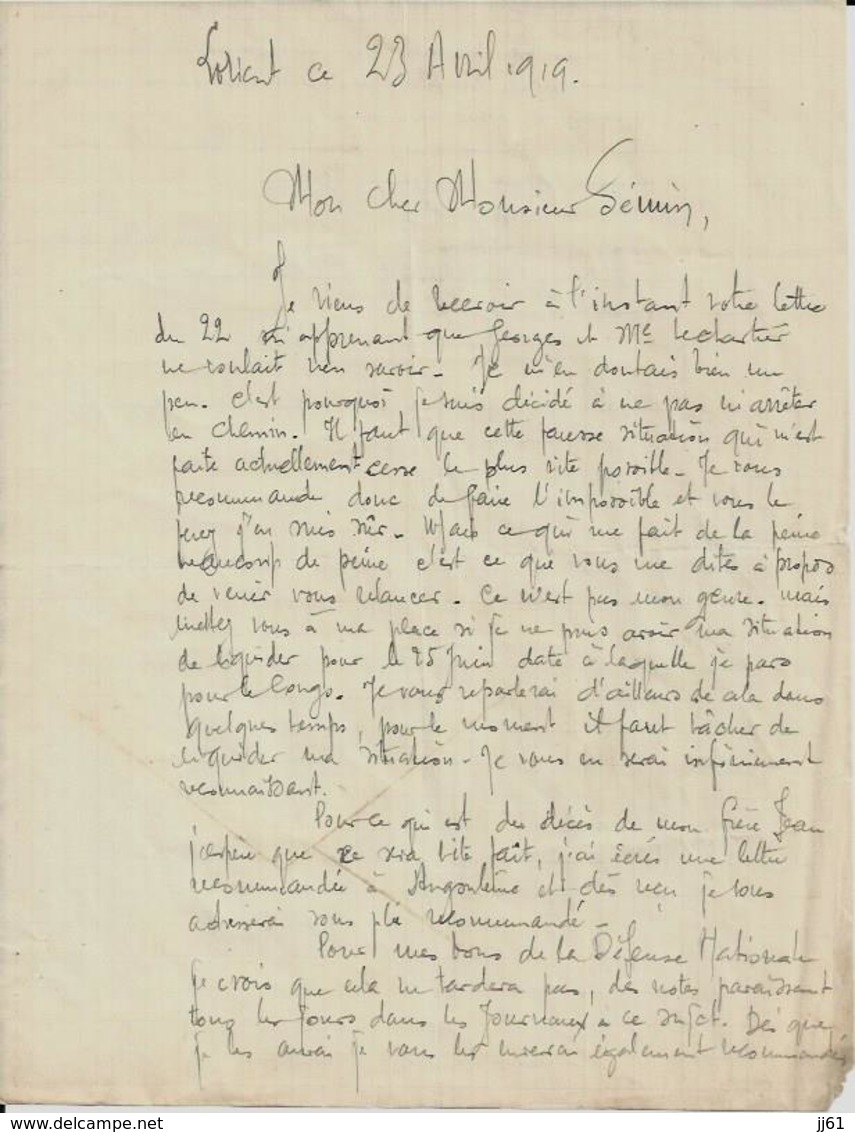 Lorient ce 23 Avril 1919.
Mon cher Monsieur Sémin,
Je viens de recevoir à l'instant votre lettre
du 22 m'apprenant que Georges et Me Lechartier
ne voulait rien savoir. Je m'en doutais bien un
peu. C'est pourquoi je suis décidé à ne pas m'arrêter
en chemin. Il faut que cette fausse situation qui m'est
faite actuellement cesse le plus vite possible. Je vous
recommande donc de faire l'impossible et vous le
ferez j'en suis sûr. Mais ce qui me fait de la peine
beaucoup de peine c'est ce que vous me dites à propos
de venir vous relancer. Ce n'est pas mon genre. Mais
mettez vous à ma place si je ne puis avoir ma situation
de liquider pour le 25 Juin date à laquelle je pars
pour le Congo. Je vous reparlerai d'ailleurs de cela dans
quelques temps, pour le moment il faut tâcher de
liquider ma situation. Je vous en serai infiniment
reconnaissant.
Pour ce qui est du décès de mon frère Jean
j'espère que ce sera vite fait, j'ai écris une lettre
recommandée à Angoulême et dès reçu je vous
adresserai sous pli recommandé.
Pour mes bons de la Défense Nationale
je crois que cela ne tardera pas, des notes paraissent
tous les jours dans les Journaux à ce sujet. Dès que
je les aurai je vous les enverrai également recommandés
jj61